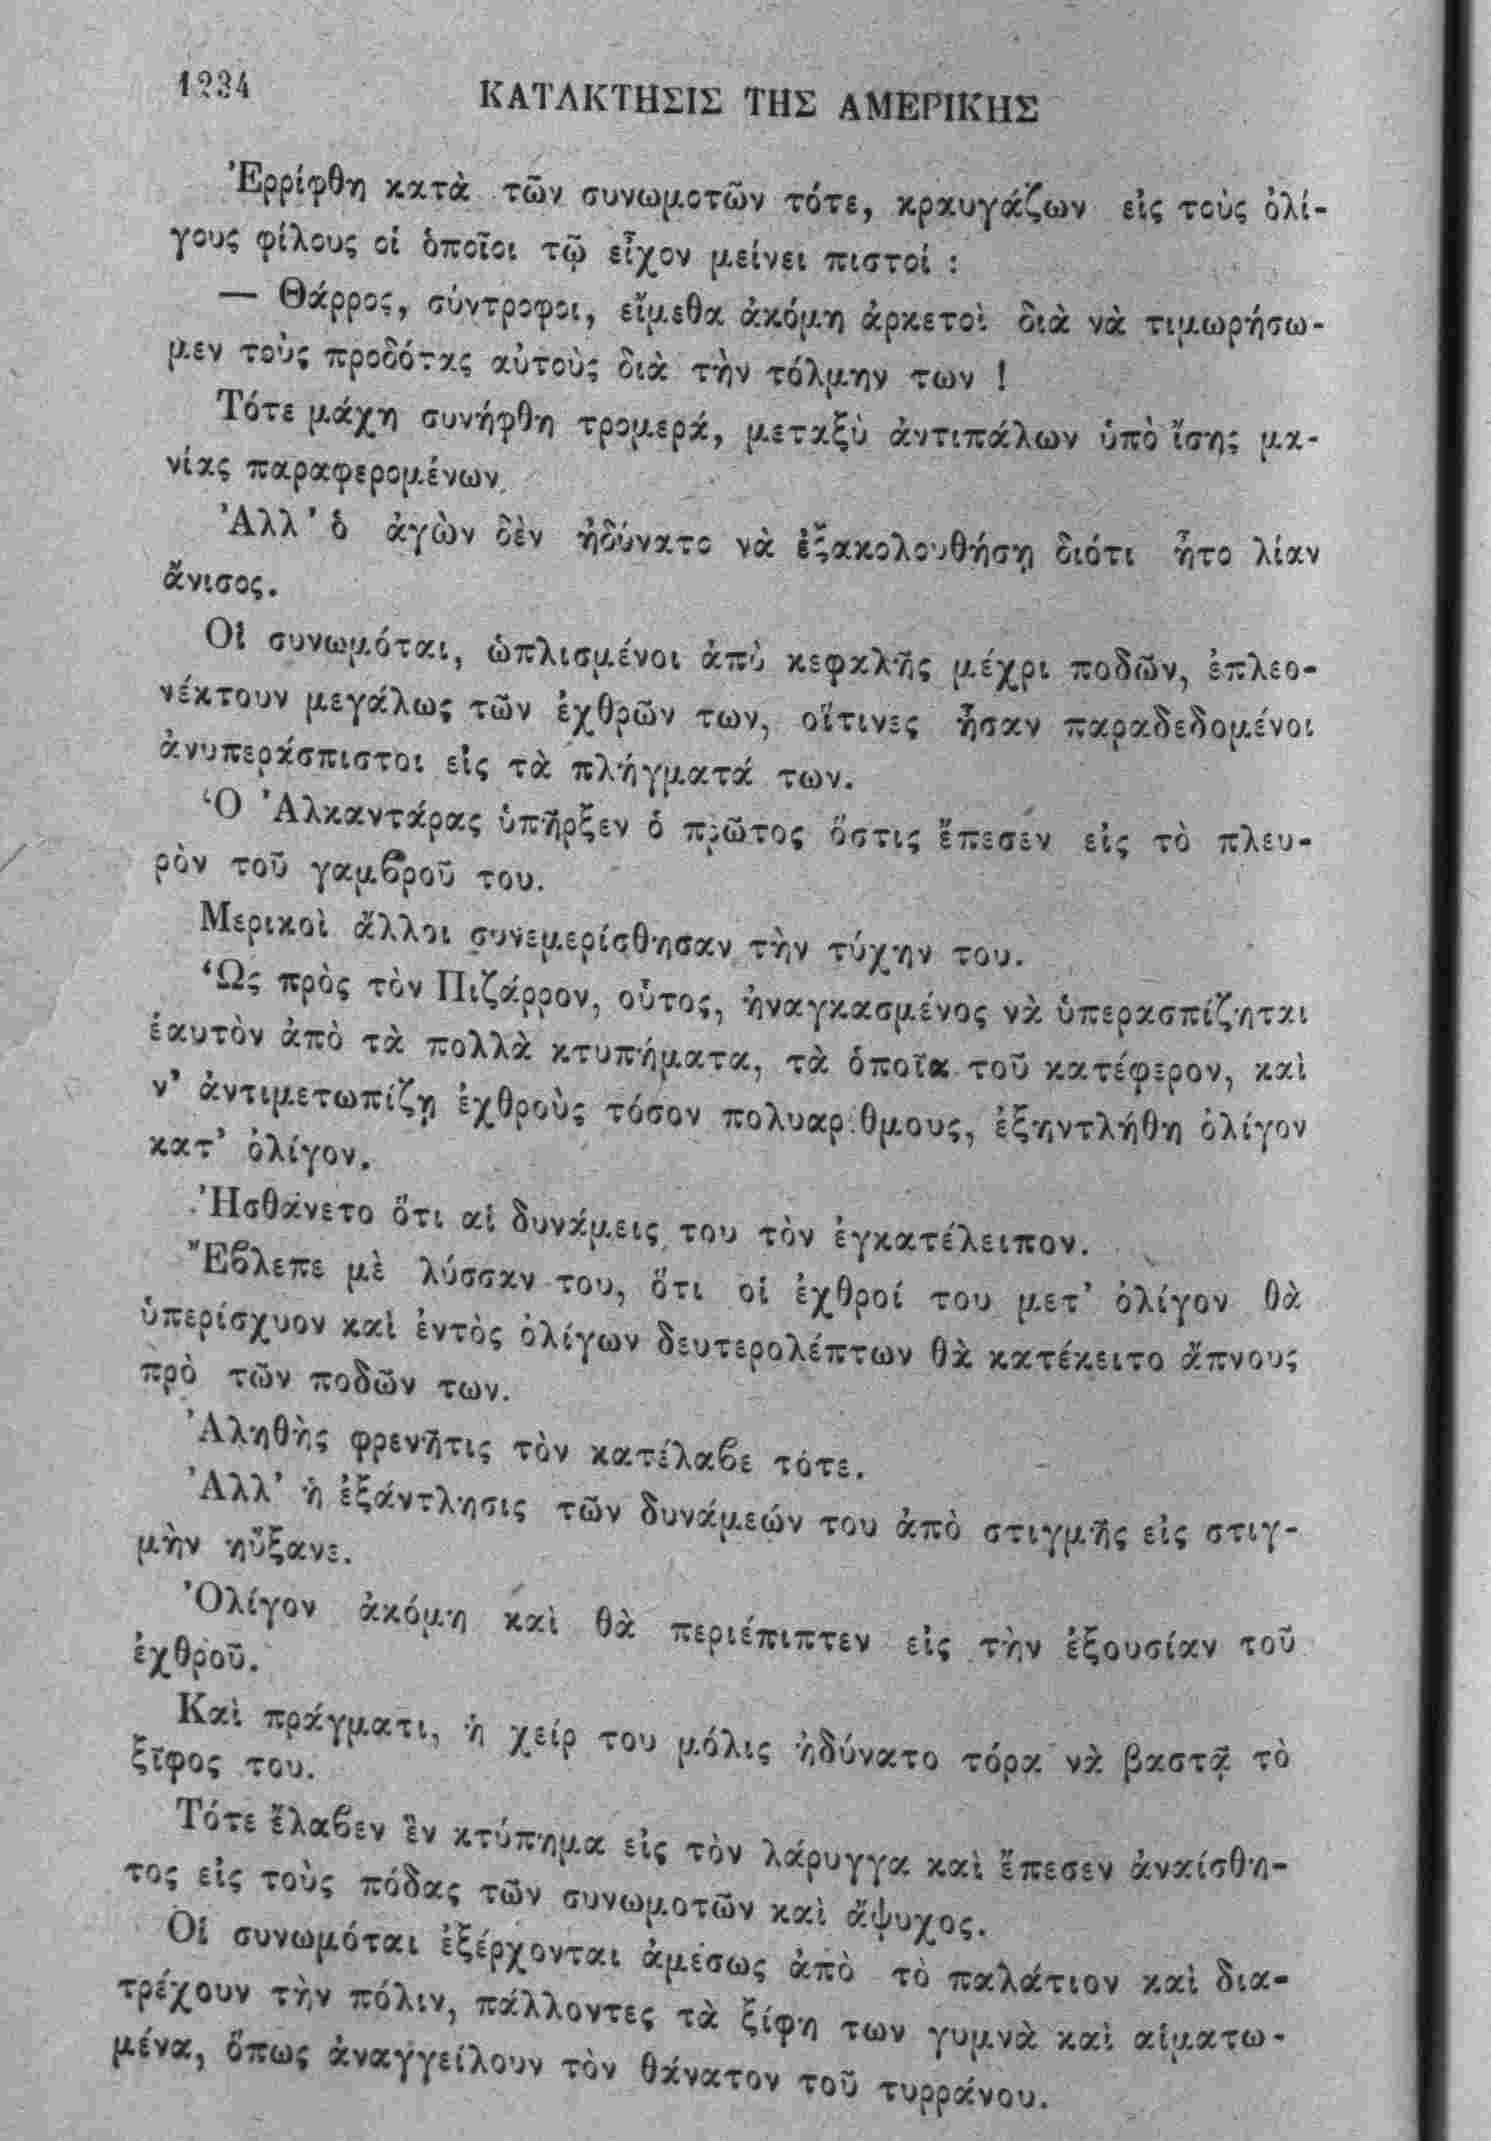 1234
ΚΑΤΑΚΤΗΣΙΣ ΤΗΣ ΑΜΕΡΙΚΗΣ
Ἐρρίφθη κατὰ τῶν συνωμοτῶν τότε, κραυγάζων εἰς τοὺς ὀλί-
γους φίλους οἱ ὁποῖοι τῷ εἶχον μείνει πιστοί :
— Θάρρος, σύντροφοι, εἴμεθα ἀκόμη ἀρκετοὶ διὰ νὰ τιμωρήσω-
μεν τοὺς προδότας αὐτοὺς διὰ τὴν τόλμην των !
Τότε μάχη συνήφθη τρομερά, μεταξὺ ἀντιπάλων ὑπὸ ἴσης μα-
νίας παραφερομένων.
Ἀλλ' ὁ ἀγὼν δὲν ἠδύνατο νὰ ἐξακολουθήσῃ διότι ἦτο λίαν
ἄνισος.
Οἱ συνωμόται, ὡπλισμένοι ἀπὸ κεφαλῆς μέχρι ποδῶν, ἐπλεο-
νέκτουν μεγάλως τῶν ἐχθρῶν των, οἵτινες ἦσαν παραδεδομένοι
ἀνυπεράσπιστοι εἰς τὰ πλήγματά των.
Ὁ Ἀλκαντάρας ὑπῆρξεν ὁ πρῶτος ὅστις ἔπεσεν εἰς τὸ πλευ-
ρὸν τοῦ γαμϐροῦ του.
Μερικοὶ ἄλλοι συνεμερίσθησαν τὴν τύχην του.
Ὡς πρὸς τὸν Πιζάρρον, οὗτος, ἠναγκασμένος νὰ ὑπερασπίζηται
ἑαυτὸν ἀπὸ τὰ πολλὰ κτυπήματα, τὰ ὁποῖα τοῦ κατέφερον, καὶ
ν' ἀντιμετωπίζῃ ἐχθροὺς τόσον πολυαρίθμους, ἐξηντλήθη ὀλίγον
κατ' ὀλίγον.
Ἠσθάνετο ὅτι αἱ δυνάμεις του τὸν ἐγκατέλειπον.
Ἔϐλεπε μὲ λύσσαν του, ὅτι οἱ ἐχθροί του μετ' ὀλίγον θὰ
ὑπερίσχυον καὶ ἐντὸς ὀλίγων δευτερολέπτων θὰ κατέκειτο ἄπνους
πρὸ τῶν ποδῶν των.
Ἀληθὴς φρενῆτις τὸν κατέλαϐε τότε.
Ἀλλ' ἡ ἐξάντλησις τῶν δυνάμεών του ἀπὸ στιγμῆς εἰς στιγ-
μὴν ηὔξανε.
Ὀλίγον ἀκόμη καὶ θὰ περιέπιπτεν εἰς τὴν ἐξουσίαν τοῦ
ἐχθροῦ.
Καὶ πράγματι, ἡ χείρ του μόλις ἠδύνατο τόρα νὰ βαστᾷ τὸ
ξῖφος του.
Τότε ἔλαϐεν ἓν κτύπημα εἰς τὸν λάρυγγα καὶ ἔπεσεν ἀναίσθη-
τος εἰς τοὺς πόδας τῶν συνωμοτῶν καὶ ἄψυχος.
Οἱ συνωμόται ἐξέρχονται ἀμέσως ἀπὸ τὸ παλάτιον καὶ δια-
τρέχουν τὴν πόλιν, πάλλοντες τὰ ξίφη των γυμνὰ καὶ αἱματω-
μένα, ὅπως ἀναγγείλουν τὸν θάνατον τοῦ τυρράνου.